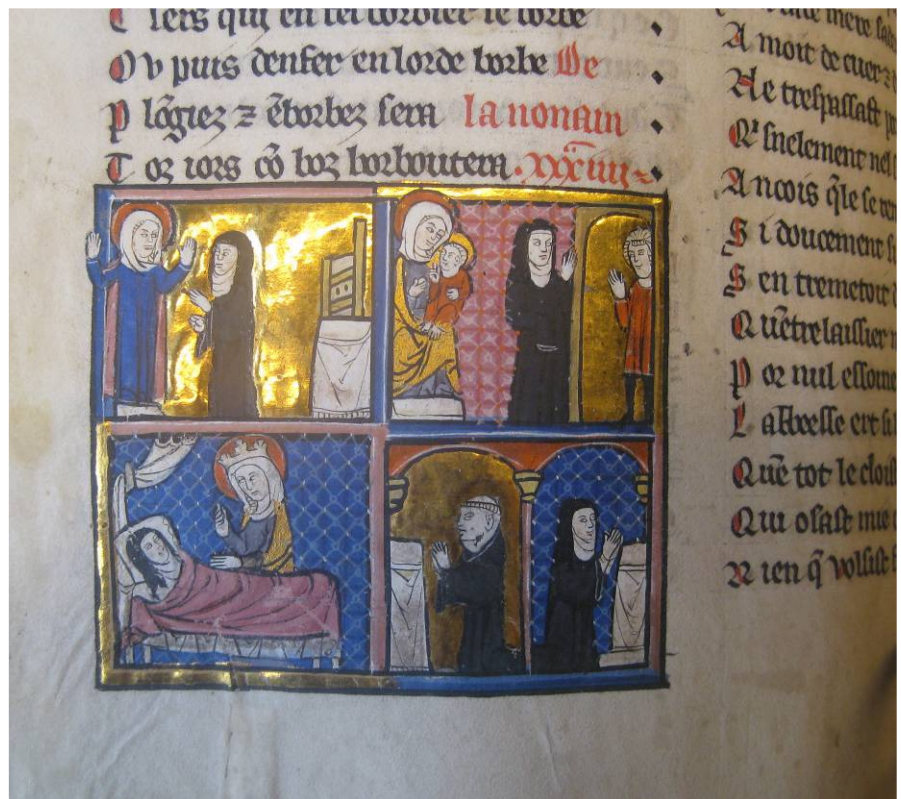 T iers qui en tel borbier se borbe
O v puis denfer en lorde borbe De
P lõgiez ⁊ ẽborbez sera la nonain
T oz iors cõ boz borboutera. xxxiiii
mere
A mort de cuer ⁊
Ne trespassast
Q' snelement nel
A ncois q̃le se
S i doucement
S en tremetoit
Q uẽtrelaissier
P or nul essoine
L abbeesse ert si
Q uẽ tot le
Q ui osast mie
R ien q̃ volsist